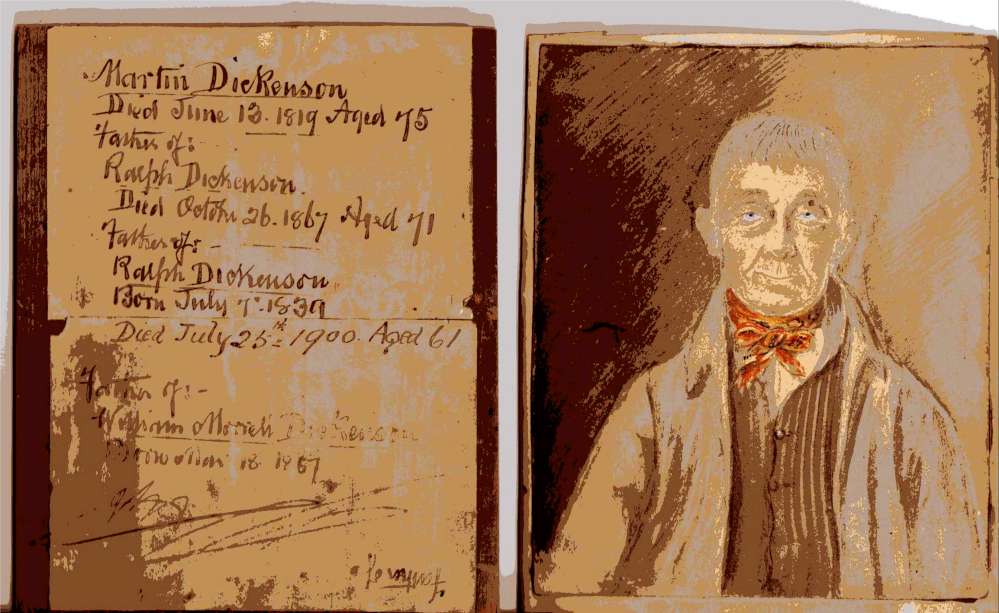 Martin Dickenson
Died June 13. 1819 Aged 75
Father of:
Ralph Dickenson.
Died October 26. 1867 Aged 71
Father of: -
Ralph Dickenson
Born July 7th 1839
Died July 25th 1900. Aged 61
Father of:-
William Morrell Dickenson
Born Mar 18 1867